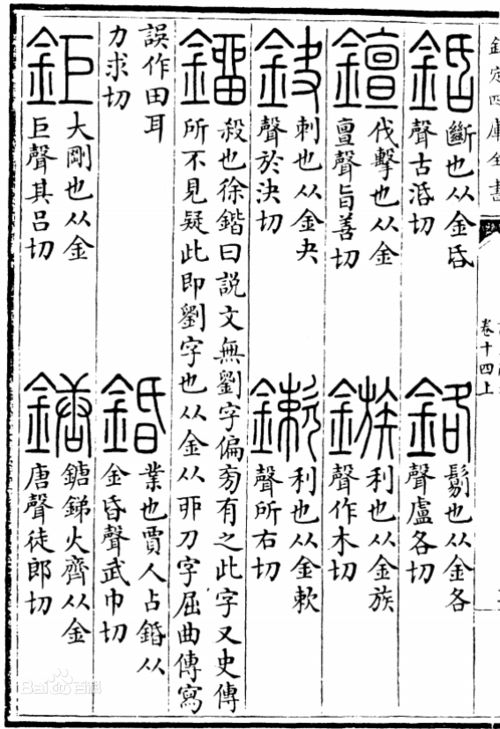 欽定四庫全書
卷十四上
銽
斷也从金昏
聲古活切
鉻
鬄也从金各
聲盧各切
伐擊也从金
亶聲旨善切
鏃
利也从金族
聲作木切
鈌
刺也从金夬
聲於決切
鏉
利也从金欶
聲所右切
鐂
殺也徐鍇曰説文無劉字偏㫄有之此字又史傳
所不見疑此即劉字也从金从丣刀字屈曲傳寫
誤作田耳
力求切
錉
業也賈人占錉从
金昏聲武巾切
鉅
大剛也从金
巨聲其呂切
鎕
鎕銻火齊从金
唐聲徒郎切
Bai百科